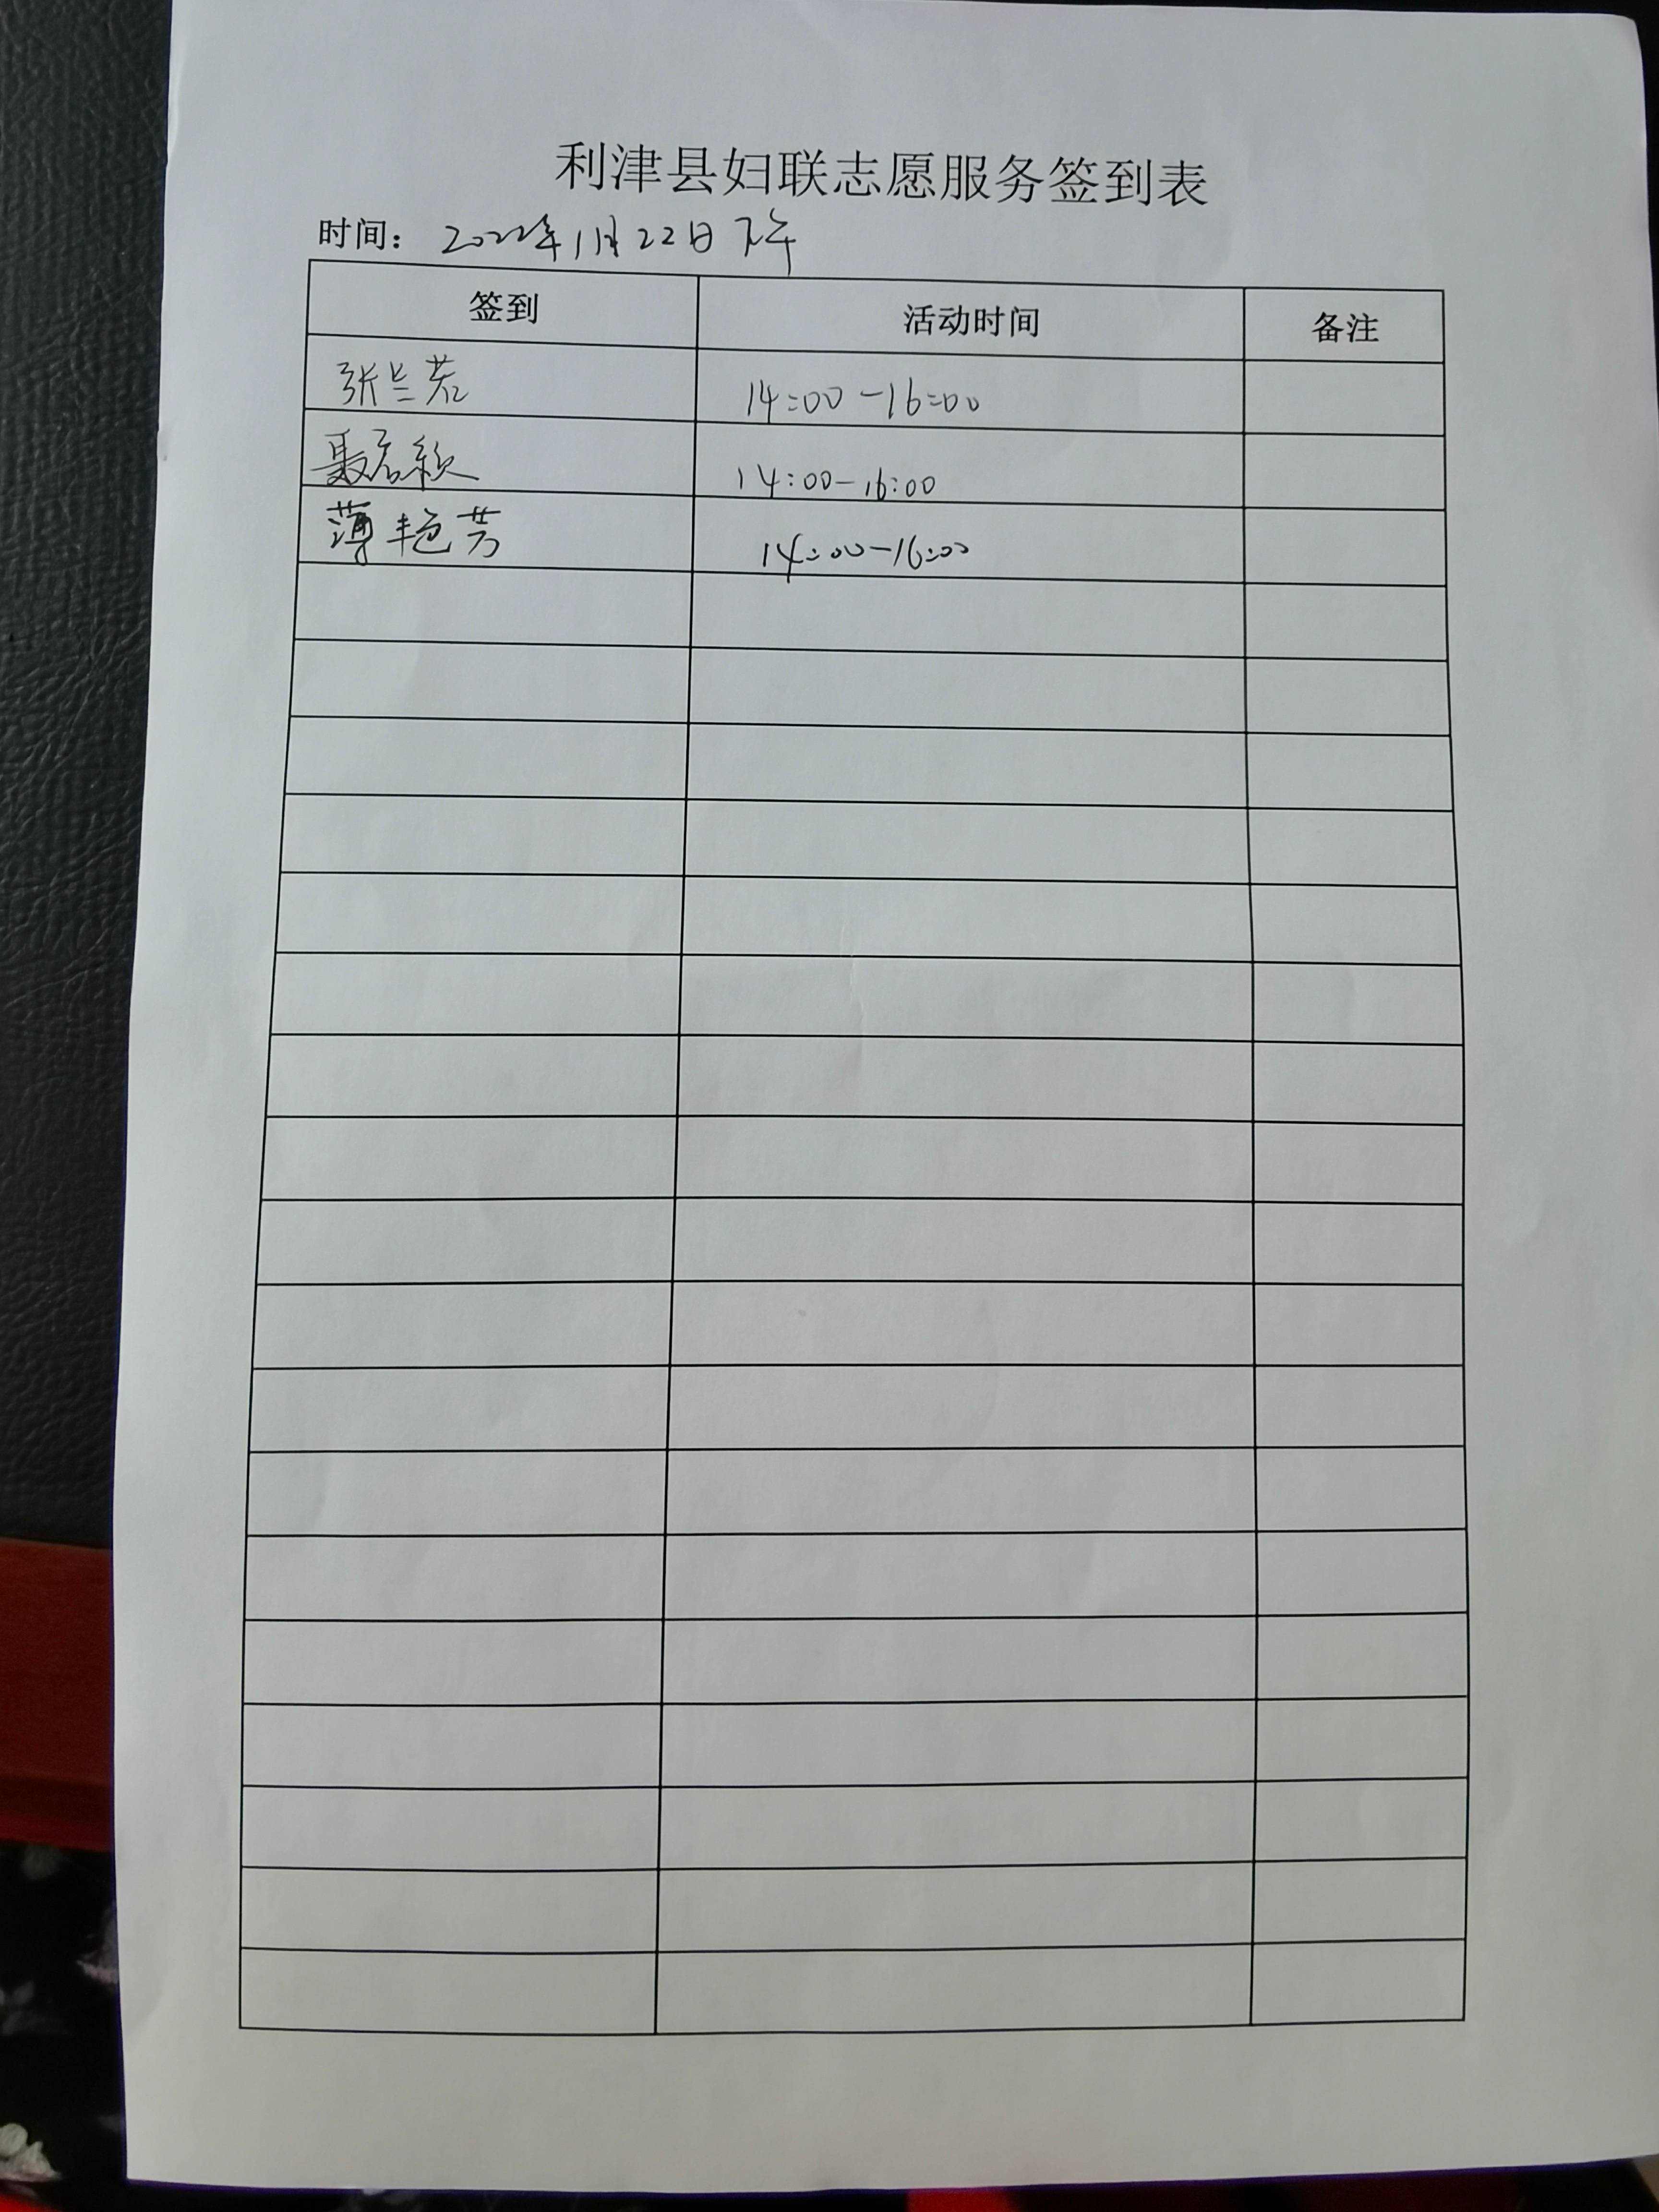 利津县妇联志愿服务签到表
时间： 2022年1月22日下午
签到 活动时间 备注
张兰若 14:00-16:00
聂君颖 14:00-16:00
薄艳芳 14:00-16:00